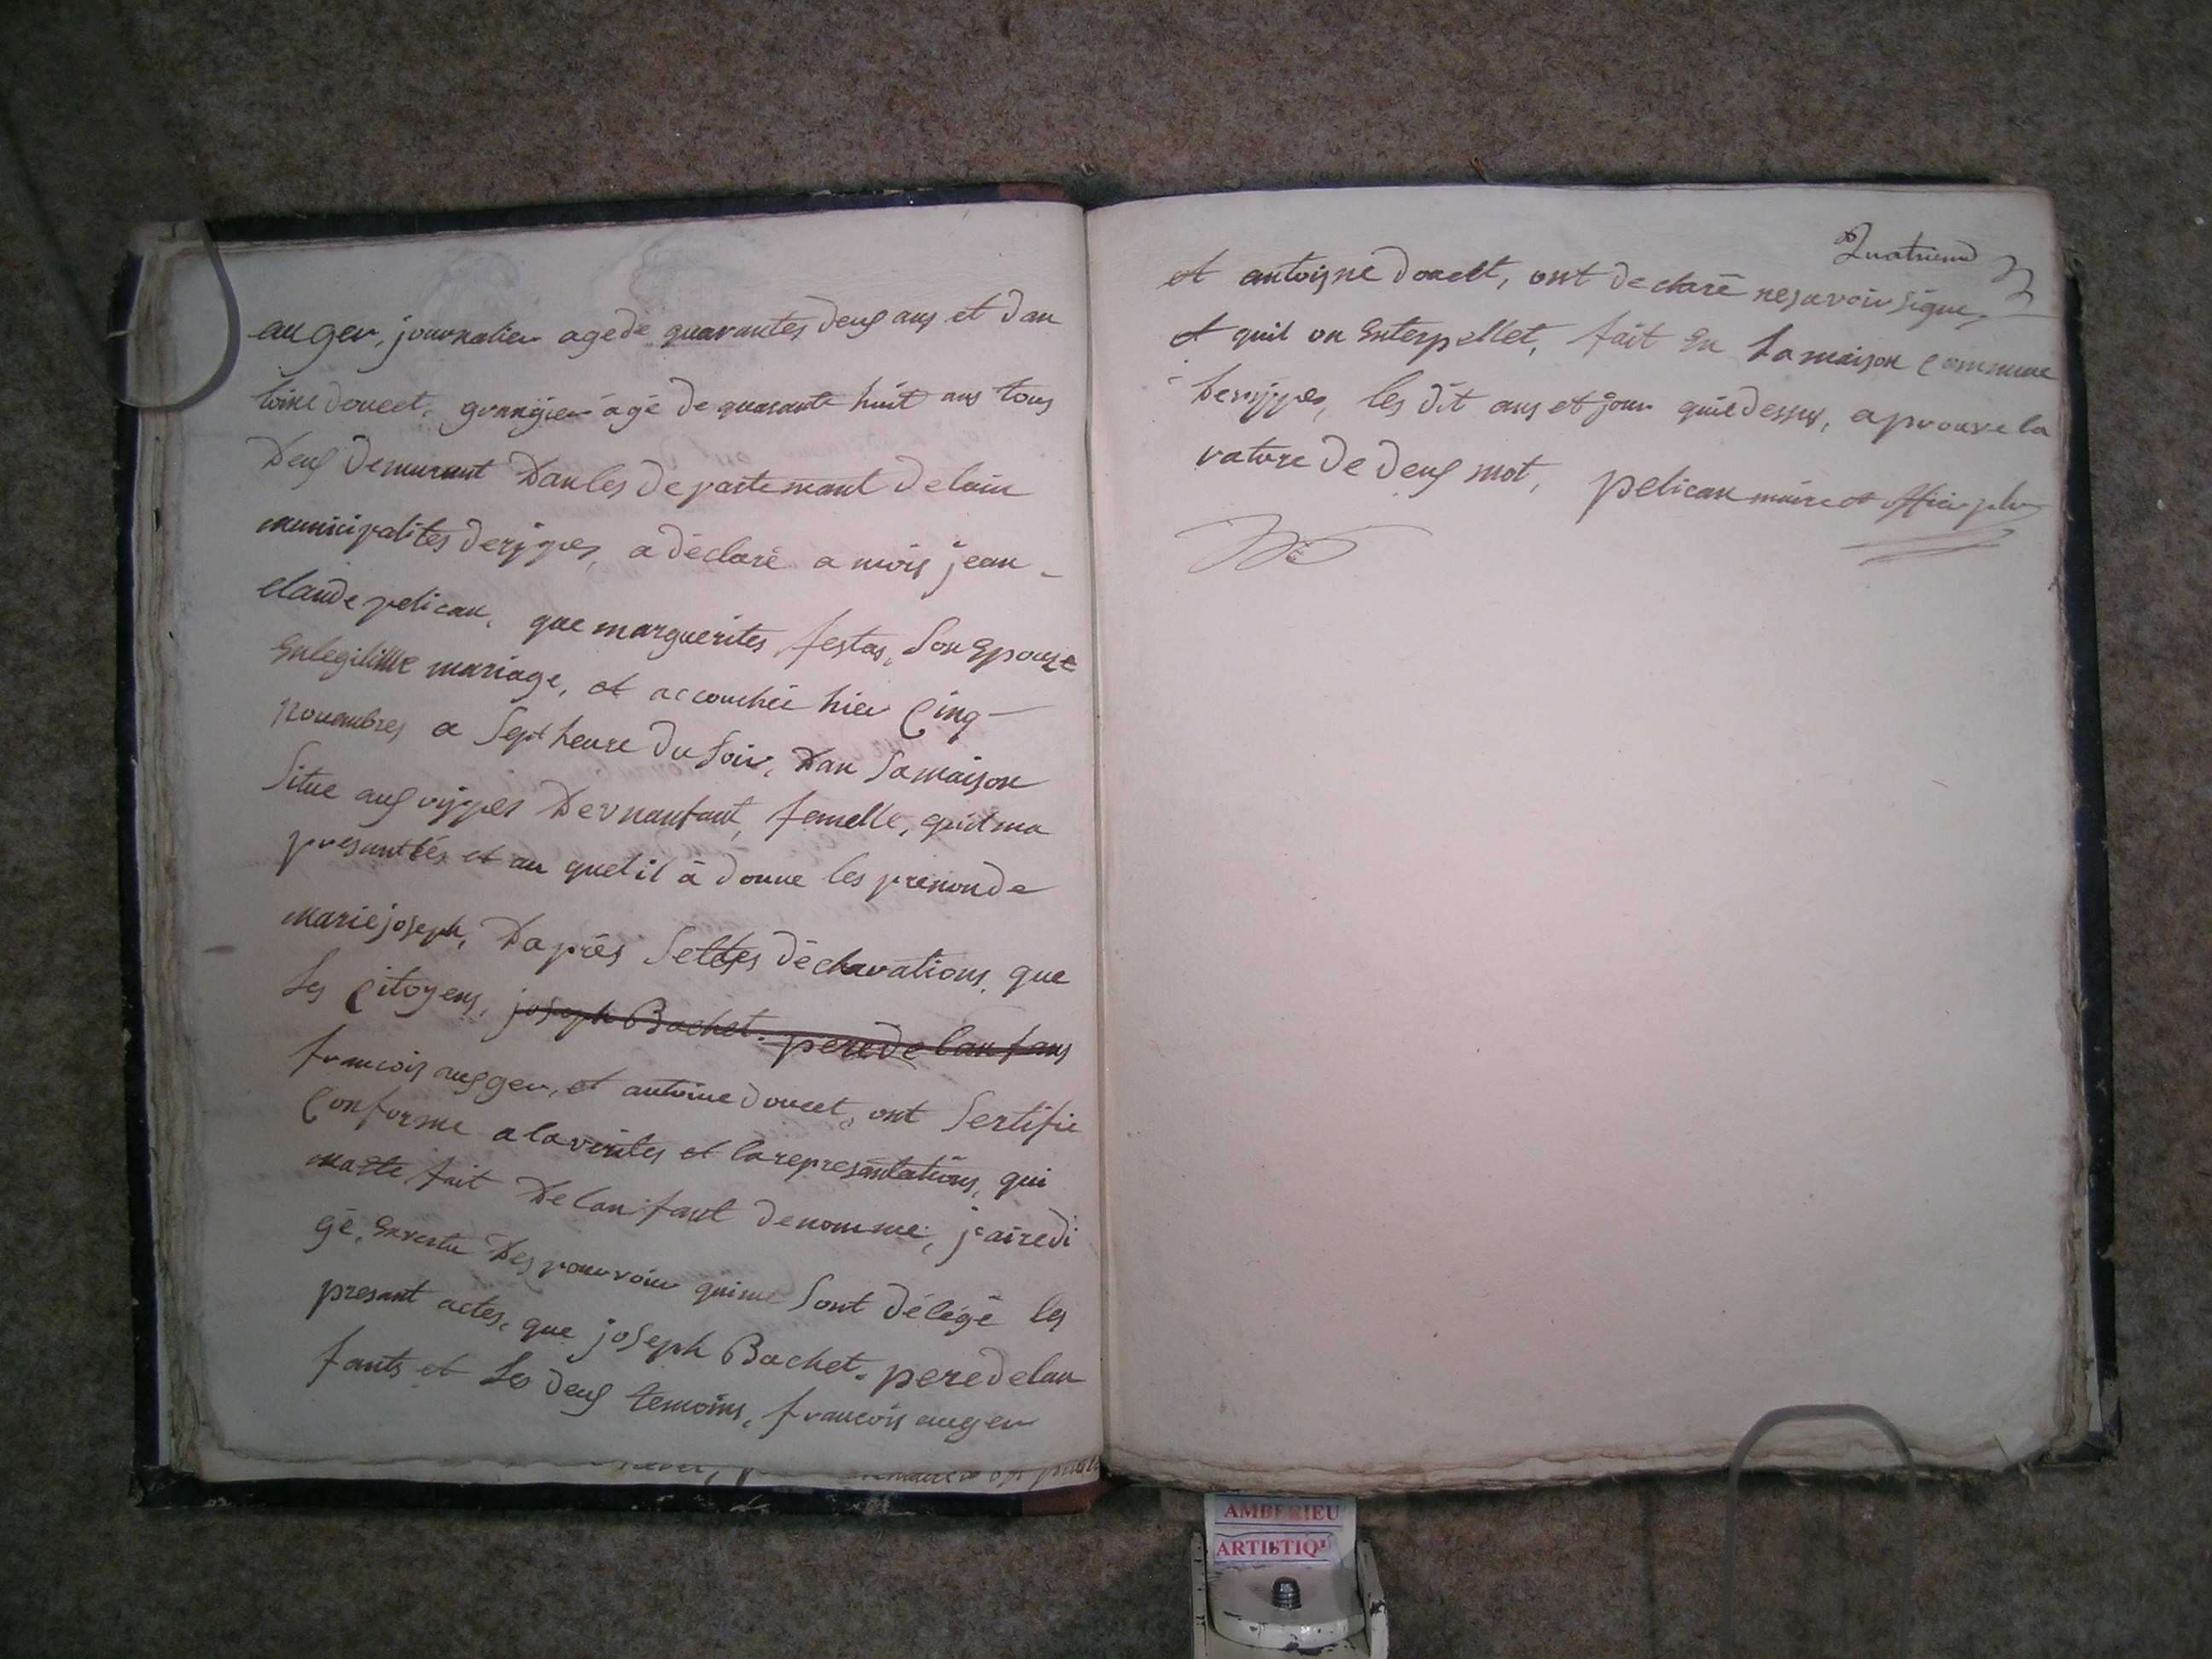 auger, journalier agede quarantes deux ans et dan
toine doucet, grangier âgé de quarante huit ans tous
Deux demeurant Dan les departemant de lain
municipalites derippes, a déclaré a mois jean -
claude pelican, que marguerites festas, Son Epouze
Enlegitime mariage, et accouchée hier Cinq -
Novembres a Sept heure du Soir, Dan Samaison
Situe aux rippes Devnanfant, femelle, quit ma
presanttés et au quel il à donne les prenon de
marie joseph, Daprés Settes déclarations, que
Les Citoyens, joseph Bachet. pere de lanfans
francois augger, et antoine doucet, ont Sertifie
Conforme alaverites et larepresantations, qui
matte fait De lanfant denommé, j'airedi
gé, Envertu Des pouvoir quime Sont délégé les
presant actes, que joseph Bachet. pere delan
fants et Les deux temoins, francois auger
Quatrieme
et antoisne doucet, ont declaré nesavoir signe,
et quil on Enterpellet, fait En Lamaison Commune
derippes, les dit ans et jour quie dessus, aprouve la
rature de deux mot, pelican maire et officier plu
AMBERIEU
ARTISTIQ